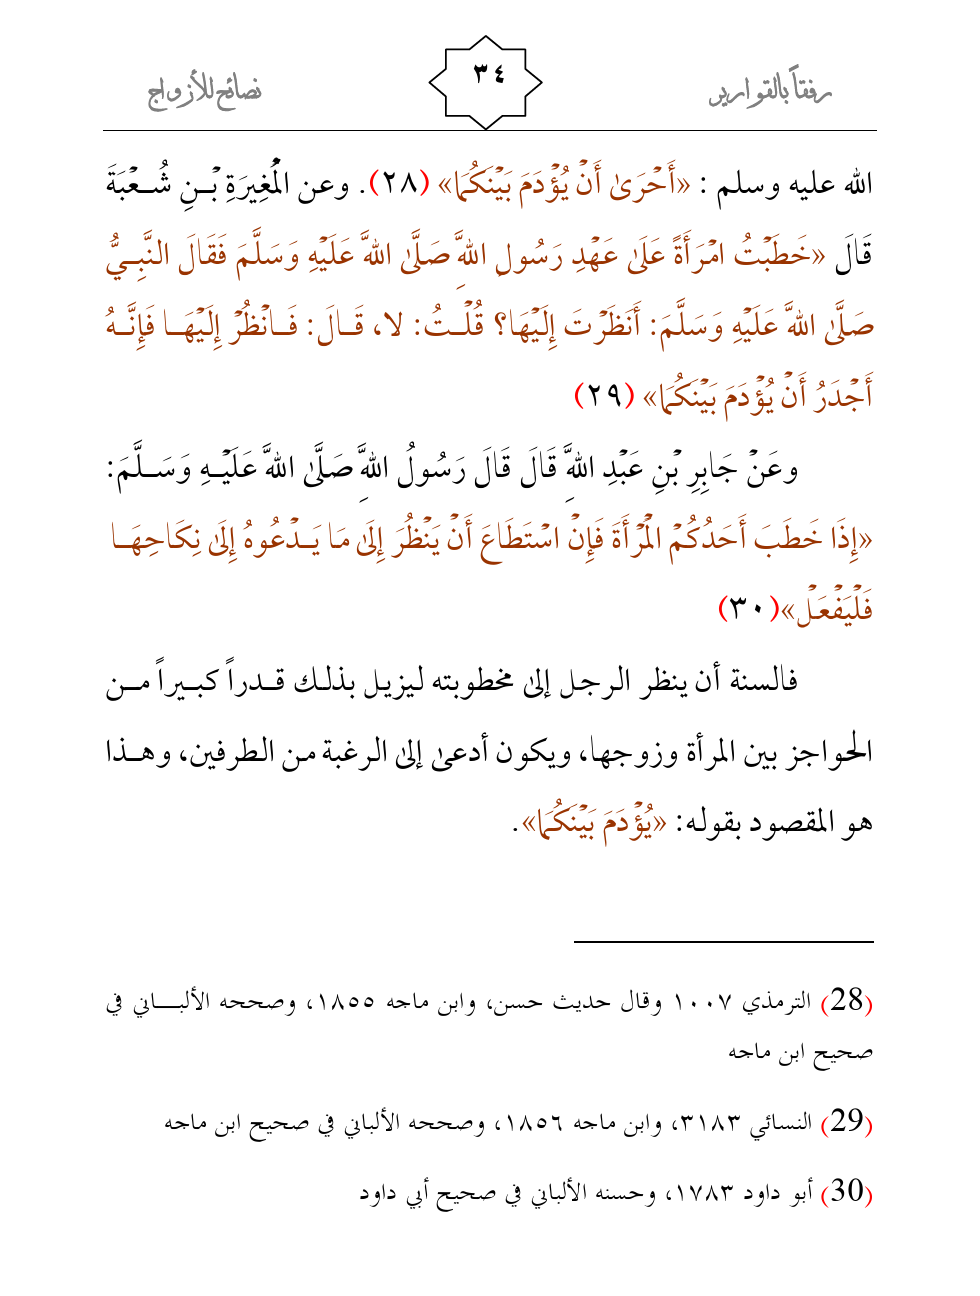 رفقاً بالقوارير
٣٤
نصائح للأزواج
الله عليه وسلم : «أَحْرَىٰ أَنْ يُؤْدَمَ بَيْنَكُمَا» (٢٨). وعن الْمُغِيرَةِ بْنِ شُعْبَةَ
قَالَ «خَطَبْتُ امْرَأَةً عَلَىٰ عَهْدِ رَسُولِ اللهِ صَلَّىٰ اللهُ عَلَيْهِ وَسَلَّمَ فَقَالَ النَّبِيُّ
صَلَّىٰ اللهُ عَلَيْهِ وَسَلَّمَ: أَنَظَرْتَ إِلَيْهَا؟ قُلْتُ: لا، قَالَ: فَانْظُرْ إِلَيْهَا فَإِنَّهُ
أَجْدَرُ أَنْ يُؤْدَمَ بَيْنَكُمَا» (٢٩)
وعَنْ جَابِرِ بْنِ عَبْدِ اللهِ قَالَ قَالَ رَسُولُ اللهِ صَلَّىٰ اللهُ عَلَيْهِ وَسَلَّمَ:
«إِذَا خَطَبَ أَحَدُكُمْ الْمَرْأَةَ فَإِنْ اسْتَطَاعَ أَنْ يَنْظُرَ إِلَىٰ مَا يَدْعُوهُ إِلَىٰ نِكَاحِهَا
فَلْيَفْعَلْ»(٣٠)
فالسنة أن ينظر الرجل إلىٰ مخطوبته ليزيل بذلك قدراً كبيراً من
الحواجز بين المرأة وزوجها، ويكون أدعىٰ إلىٰ الرغبة من الطرفين، وهذا
هو المقصود بقوله: «يُؤْدَمَ بَيْنَكُمَا».
(28) الترمذي ١٠٠٧ وقال حديث حسن، وابن ماجه ١٨٥٥، وصححه الألباني في
صحيح ابن ماجه
(29) النسائي ٣١٨٣، وابن ماجه ١٨٥٦، وصححه الألباني في صحيح ابن ماجه
(30) أبو داود ١٧٨٣، وحسنه الألباني في صحيح أبي داود